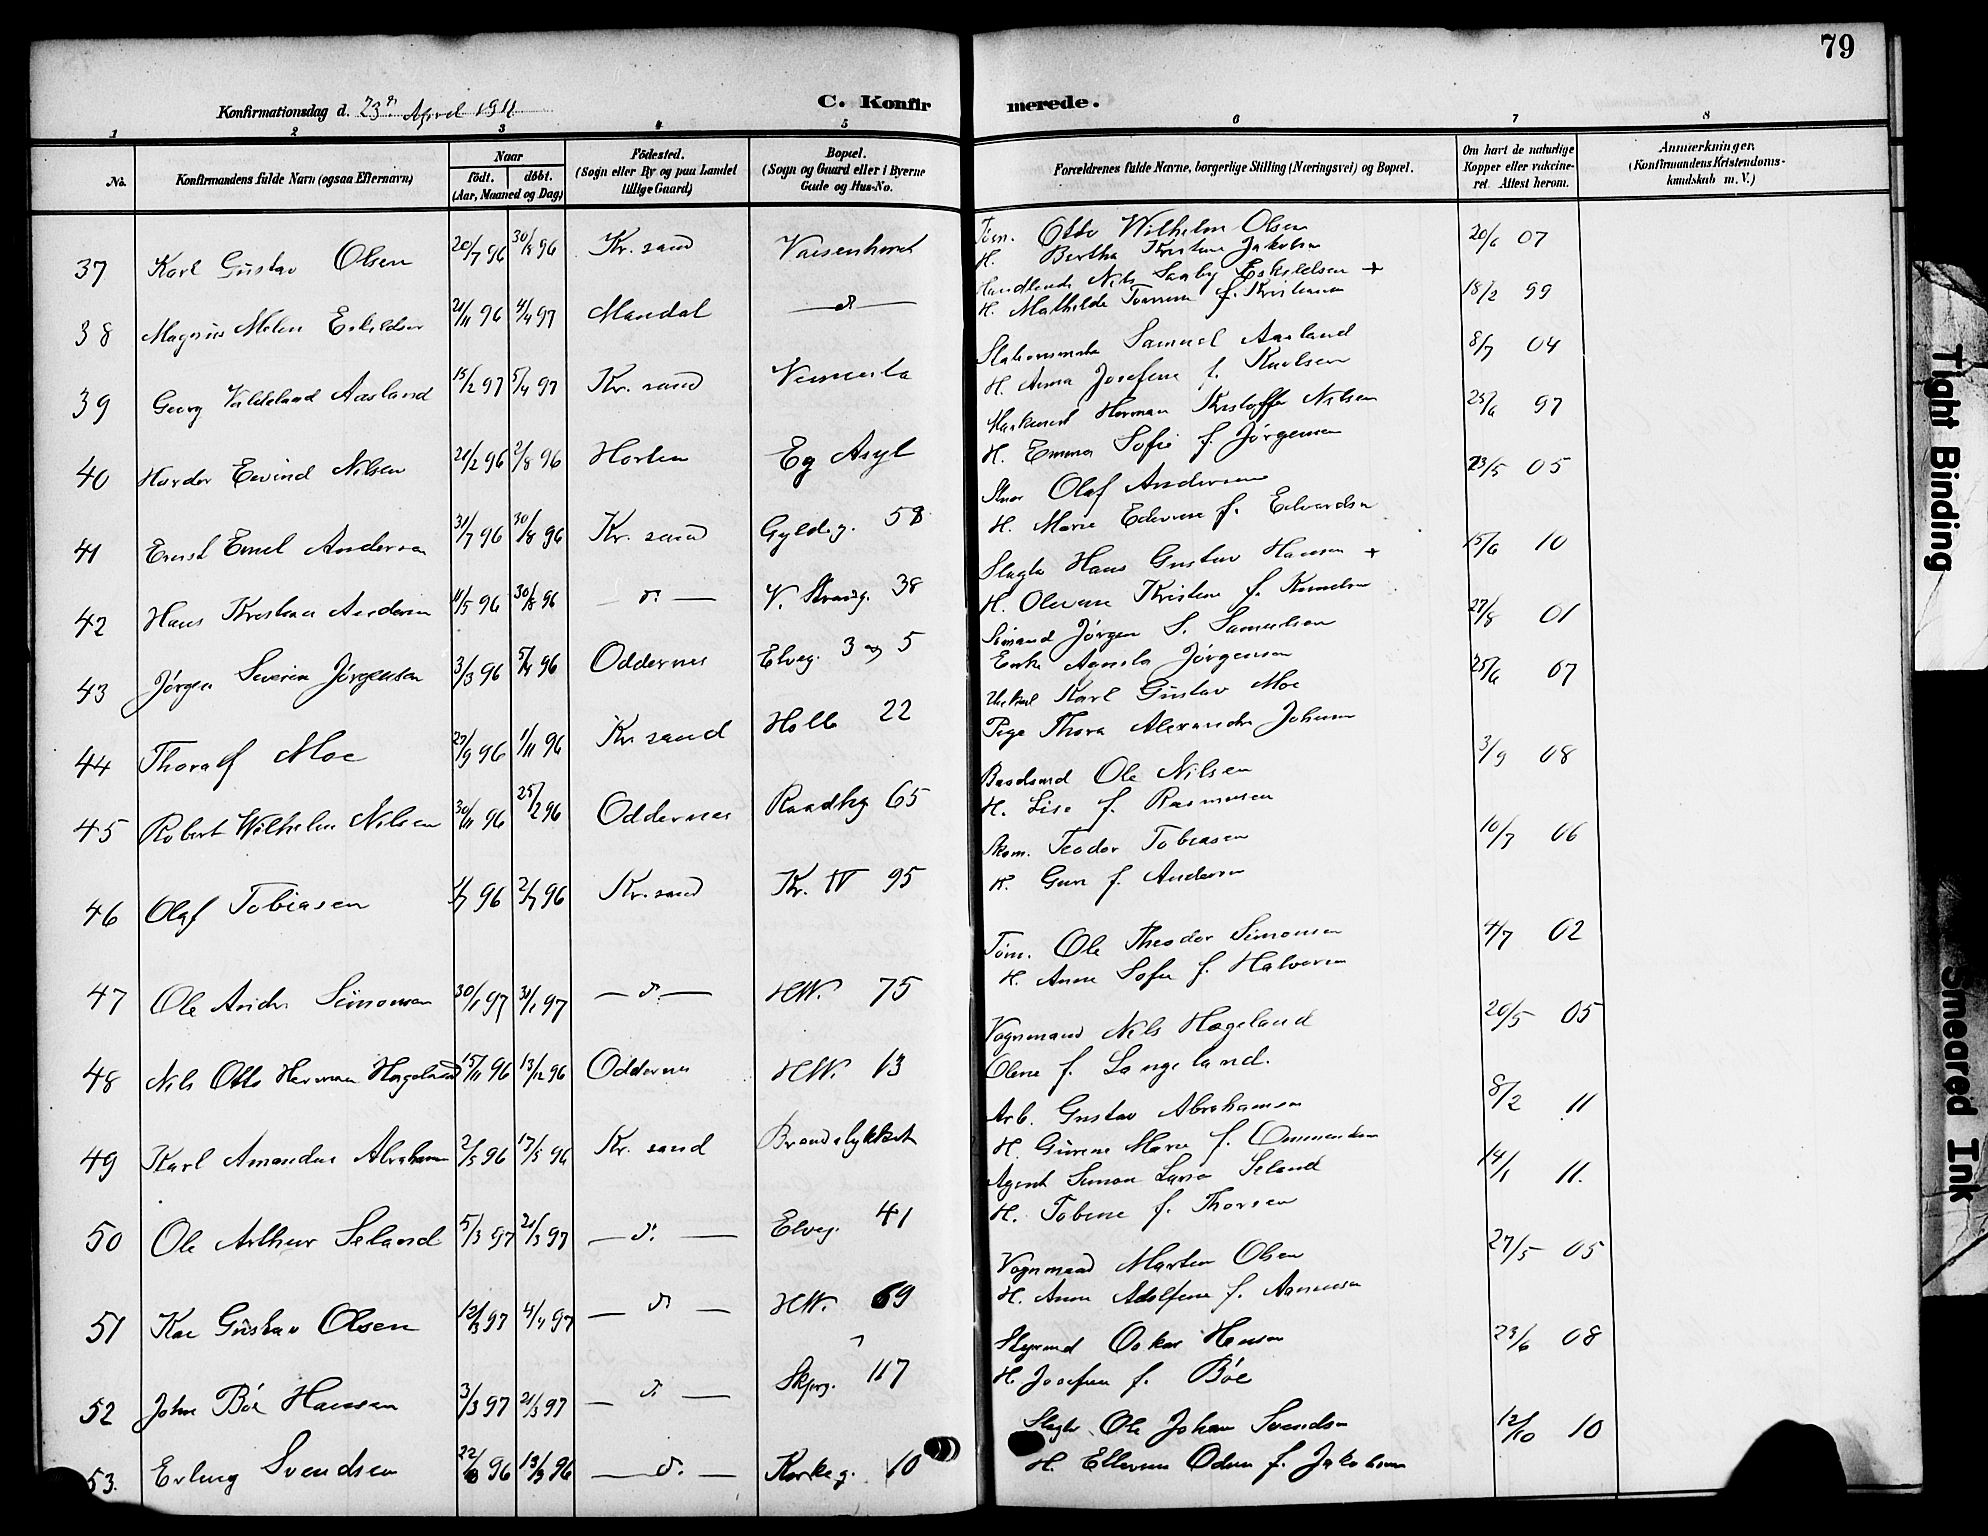 79
Konfirmationsdag d. 23de April 1911
C. Konfirmerede.
1 2 3 4 5 6 7 8
No.
Konfirmandens fulde Navn (ogsaa Efternavn)
Naar
født. døbt.
(Aar, Maaned og Dag)
Fødested.
(Sogn eller By og paa Landet
tillige Gaard)
Bopæl.
(Sogn og Gaard eller i Byerne
Gade og Hus-No.
Forældrenes fulde Navne, borgerlige Stilling (Næringsvei) og Bopæl.
Om havt de naturlige
Kopper eller vakcine-
ret. Attest herom.
Anmærkninger.
(Konfirmandens Kristendoms-
kundskab m. V.)
37 Karl Gustav Olsen 20/7 96 30/8 96 Kr.sand Otto Wilhelm Olsen 20/6 07
H. Bertha Kristine Jakobsen
38 Magnus Eskildsen 21/11 96 4/4 97 Mandal d Nils Saaby Eskildsen + 18/2 99
H. Mathilde f. Kristensen
39 Georg Aasland 15/2 97 5/4 97 Kr.sand Vennesla Samuel Aasland 8/7 04
H. Anna Josefine f. Karlsen
40 Eivind Nilsen 21/2 96 2/8 96 Horten Eg Asyl Herman Kristoffer Nilsen 25/6 97
H. Emma Sofie f. Jørgensen
41 Ernst Emil Andersen 31/7 96 30/8 96 Kr.sand Gyldg. 58 Olaf Andersen 23/5 05
H. Marie f. Edvardsen
42 Hans Kristian Andersen 11/5 96 30/8 96 d. V. Strandg. 38 Slagter Hans Gustav Hansen + 15/6 10
H. Kristine f.
43 Jørgen Severin Jørgensen 3/3 96 5/4 96 Oddernes Elveg. 3 og 5 Sømand Jørgen S. Samuelsen 27/8 01
Enke Jørgensen
44 Thoralf Moe 27/9 96 1/11 96 Kr.sand Holb 22 Karl Gustav Moe 25/6 07
Pige Thora Alexandra Johnsen
45 Robert Wilhelm Nilsen 30/11 96 25/2 96 Oddernes Raadhg 65 Baadsmd Ole Nilsen 3/9 08
H. Lise f. Rasmussen
46 Olaf Tobiasen 4/7 96 2/7 96 Kr.sand Kr. IV 95 Skom. Teodor Tobiasen 10/7 06
H. Guri f. Andersen
47 Ole Andr. Simonsen 30/1 97 31/1 97 d. HW. 75 Tøm. Ole Theodor Simonsen 4/7 02
H. Anne Sofie f. Halvorsen
48 Nils Otto Herman Hægeland 15/11 96 13/12 96 Oddernes HW. 13 Vognmand Nils Hægeland 20/5 05
Olene f. Langeland.
49 Karl Amandus Abrahamsen 2/5 96 17/5 96 Kr.sand Arb. Gustav Abrahamsen 8/2 11
H. Gurine Marie f. Ommundsen
50 Ole Arthur Seland 5/3 97 21/3 97 d. Elveg. 41 Agent Simon Lars Seland 14/1 11.
H. Tobine f. Thorsen
51 Kar Gustav Olsen 12/3 97 4/4 97 d. HW. 69 Vognmand Martin Olsen 27/5 05
H. Anne Adolfine f.
52 John Bøe Hansen 3/3 97 21/3 97 d. Skipsg. 117 Styrmd Oskar Hansen 23/6 08
H. Josefine f. Bøe
53. Erling Svendsen 22/8 96 13/3 96 d. Kirkeg. 10 Slagter Ole Johan Svendsen 12/10 10
H. f. Jakobsen
Tight Binding
Smeared Ink